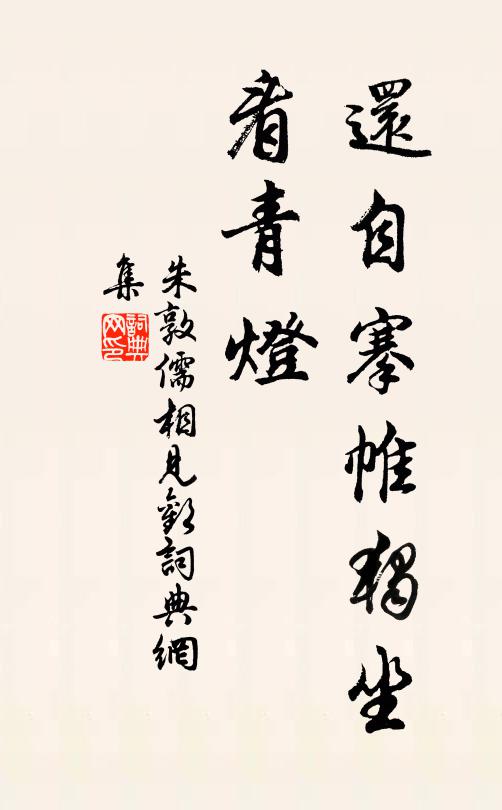 還自搴帷獨坐
看青燈
朱敦儒相見歡詞典網
集
詞典
网印